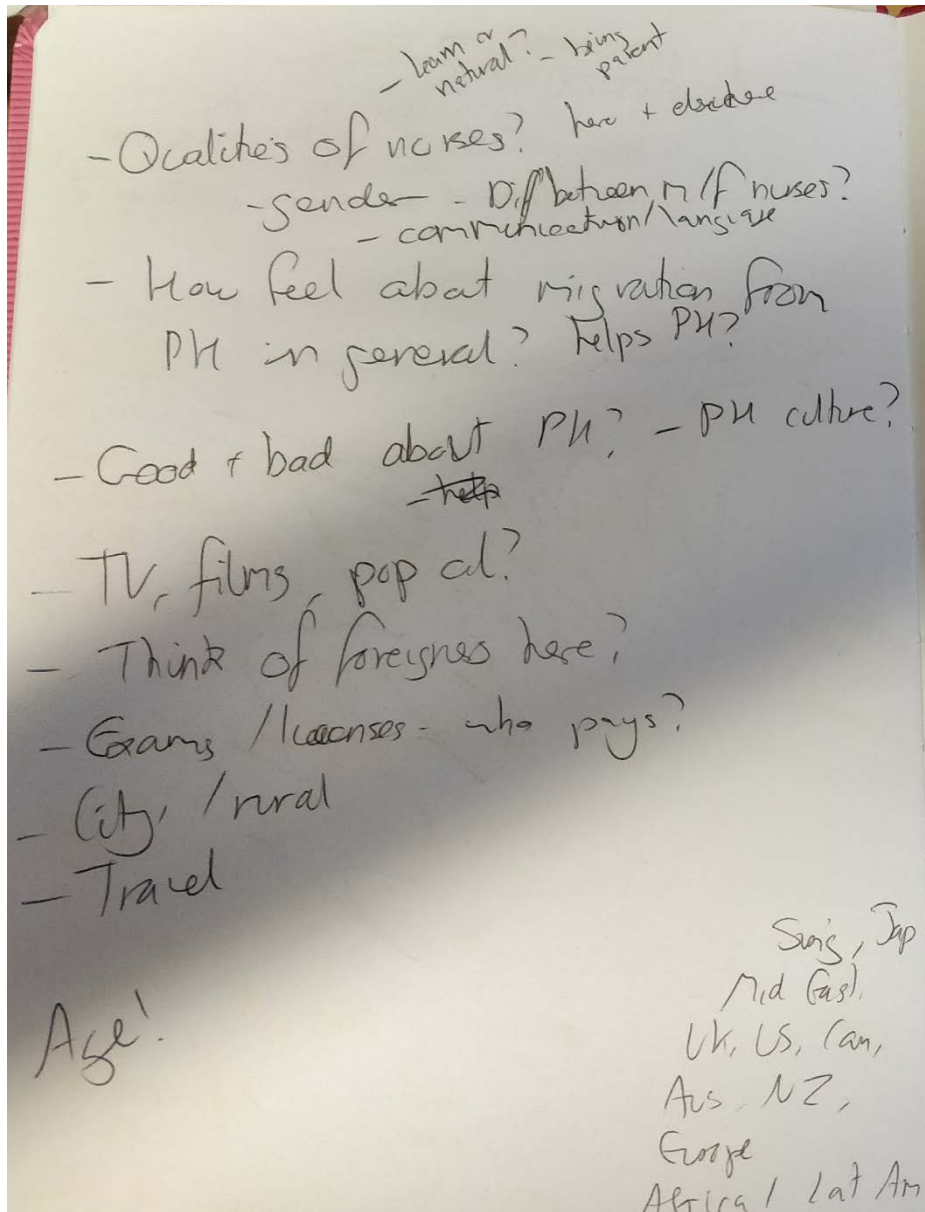 - learn or natural? - being parent
- Qualities of nurses? here + elsewhere
- gender - Diff between m/f nurses?
- communication/language
- How feel about migration from
PH in general? Helps PH?
- Good + bad about PH? - PH culture?
- help
- TV, films, pop cul?
- Think of foreigners here?
- Exams / licenses - who pays?
- City / rural
- Travel
Age!
Sing, Jap
Mid East,
UK, US, Can,
Aus, NZ,
Europe
Africa / Lat Am